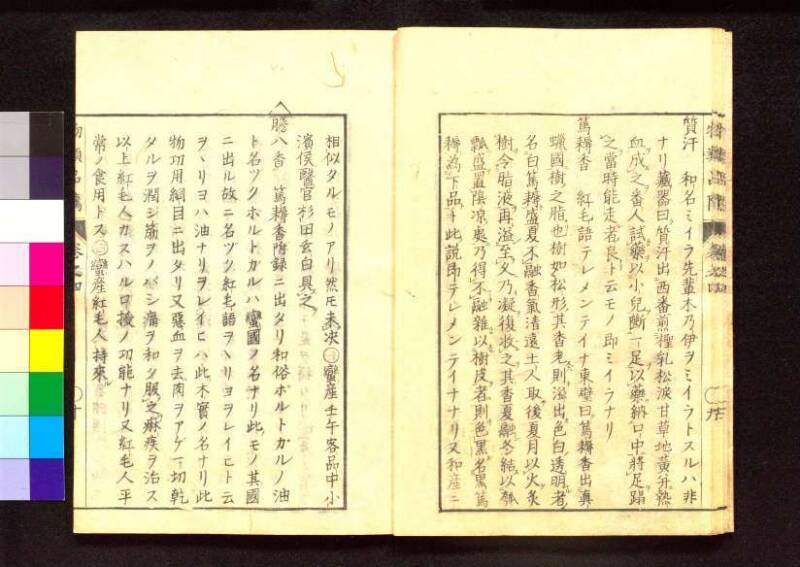 質汗 和名ミイラ先輩木乃伊ヲミイラトスルハ非
ナリ藏器曰質汗出西番煎檉乳松淚甘草地黄并熱
血成之番人試藥以小兒斷一足以藥納口中將足蹋
之當時能走者良ト云モノ即ミイラナリ
篤耨香 紅毛語テレメンテイナ東璧曰篤耨香出真
臘國樹之脂也樹如松形其香老則溢出色白透明者
名白篤耨盛夏不融香氣清遠土人取後夏月以火炙
樹令脂液再溢至冬乃凝復收之其香夏融冬結以瓠
瓢盛置陰凉處乃得不融雜以樹皮者則色黑名黑篤
耨為下品ト此説即テレメンテイナナリ又和産ニ
物類品隲 卷之四 廿
相似タルモノアリ然㪽未決○蠻産壬午客品中小
濱侯醫官杉田玄白具之
膽八香 篤耨香附録ニ出タリ和俗ポルトガルノ油
ト名ヅクホルトガルハ蠻國ノ名ナリ此モノ其國
ニ出ル故ニ名ヅク紅毛語ヲヽリヨヲレイヒト云
ヲヽリヨハ油ナリヲレイヒハ此木實ノ名ナリ此
物功用綱目ニ出タリ又惡血ヲ去肉ヲアゲ一切乾
タルヲ潤シ筋ヲノベシ痛ヲ和ク服之痳疾ヲ治ス
以上紅毛人カスハルロ授ノ功能ナリ又紅毛人平
常ノ食用トス○蠻産紅毛人持來